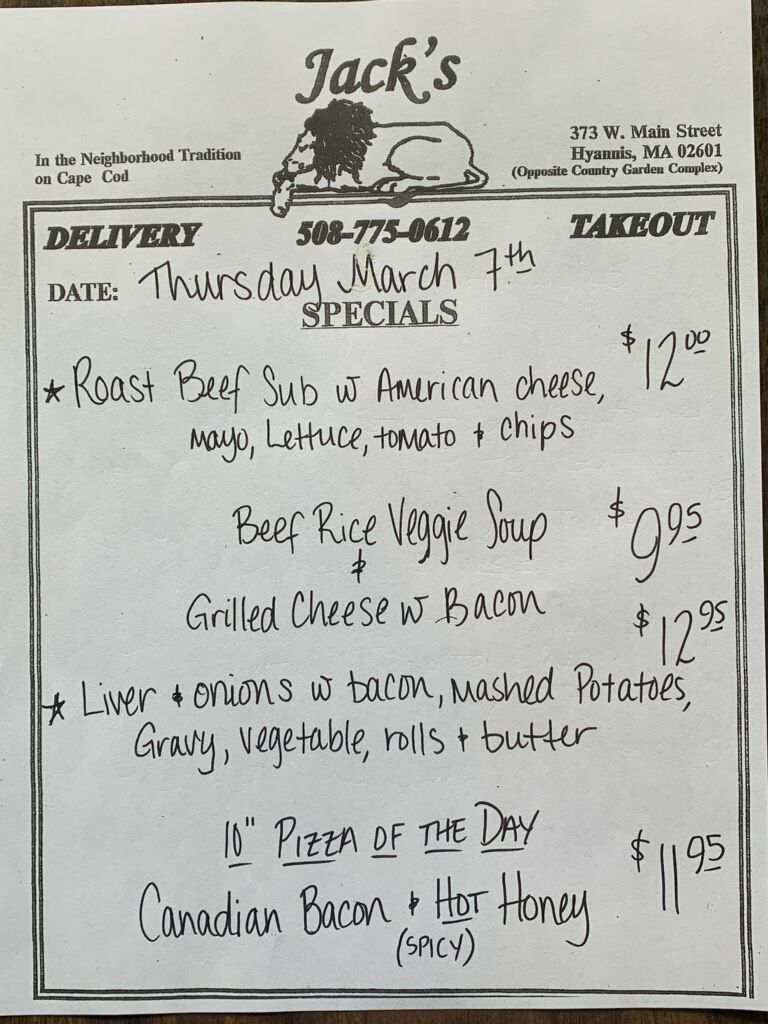 Jack's
In the Neighborhood Tradition
on Cape Cod
373 W. Main Street
Hyannis, MA 02601
(Opposite Country Garden Complex)
DELIVERY 508-775-0612 TAKEOUT
DATE: Thursday March 7th
SPECIALS
★ Roast Beef Sub w American cheese, $12.00
mayo, Lettuce, tomato & chips
Beef Rice Veggie Soup $9.95
&
Grilled Cheese w Bacon
$12.95
★ Liver & onions w bacon, mashed Potatoes,
Gravy, vegetable, rolls & butter
10" PIZZA OF THE DAY
$11.95
Canadian Bacon & HOT Honey
(SPICY)